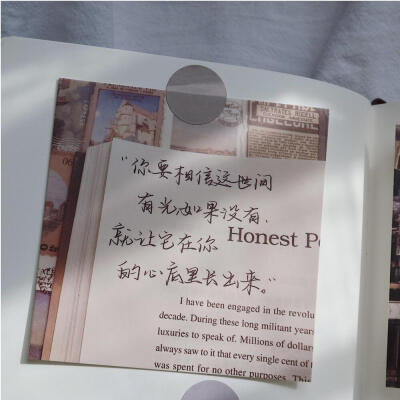 "你要相信这世间
有光如果没有、
就让它在你
的心底里长出来。"
Honest P
I have been engaged in the revolu
decade. During these long militant years
luxuries to speak of. Millions of dollar
always saw to it that every single cent of
was spent for no other purposes. This